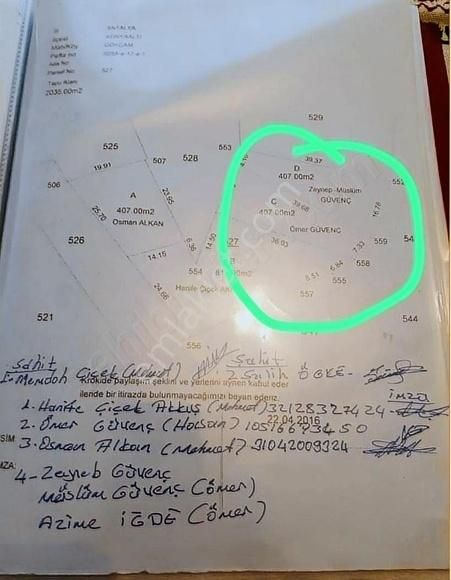 İli ANTALYA
İlçesi KONYAALTI
Mah/Köy DOYRAN
Pafta no
Ada No
Parsel No 527
Tapu Alanı
2035.00m2
529
525
553
507
528
19.91
39.37
D
407.00m2
506
A
407.00m2
Osman ALKAN
Zeynep -Müslüm
GÜVENÇ
C
407.00m2
39.68
16.78
Ömer GÜVENÇ
25.70
526
6.36
14.50
36.03
7.33
559
14.15
B
554
6.84
558
8.51
555
24.66
Hanife Çiçek
557
521
544
556
Şahit
1. Memdoh Çiçek (Mehmet)
Şahit
2 Salih ÖGKE
Krokide paylaşım şeklini ve yerlerini aynen kabul eder
ilende bir itirazda bulunmayacağımızı beyan ederiz.
imza
1. Hanife Çiçek Akkuş (Mehmet) 32128327424
22.04.2016
2. Ömer Güvenç (Hasan)
3. Osman Alkan (Mehmet) 31042009324
4- Zeyneb GÜVENÇ
Müslüm GÜVENÇ (ömer)
Azime İĞDE (ömer)